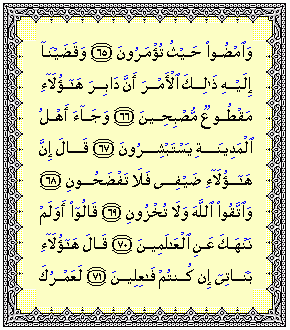 وَٱمۡضُواْ حَيۡثُ تُؤۡمَرُونَ ٦٥ وَقَضَيۡنَآ
إِلَيۡهِ ذَٰلِكَ ٱلۡأَمۡرَ أَنَّ دَابِرَ هَـٰٓؤُلَآءِ
مَقۡطُوعٞ مُّصۡبِحِينَ ٦٦ وَجَآءَ أَهۡلُ
ٱلۡمَدِينَةِ يَسۡتَبۡشِرُونَ ٦٧ قَالَ إِنَّ
هَـٰٓؤُلَآءِ ضَيۡفِي فَلَا تَفۡضَحُونِ ٦٨
وَٱتَّقُواْ ٱللَّهَ وَلَا تُخۡزُونِ ٦٩ قَالُوٓاْ أَوَلَمۡ
نَنۡهَكَ عَنِ ٱلۡعَٰلَمِينَ ٧٠ قَالَ هَـٰٓؤُلَآءِ
بَنَاتِيٓ إِن كُنتُمۡ فَٰعِلِينَ ٧١ لَعَمۡرُكَ